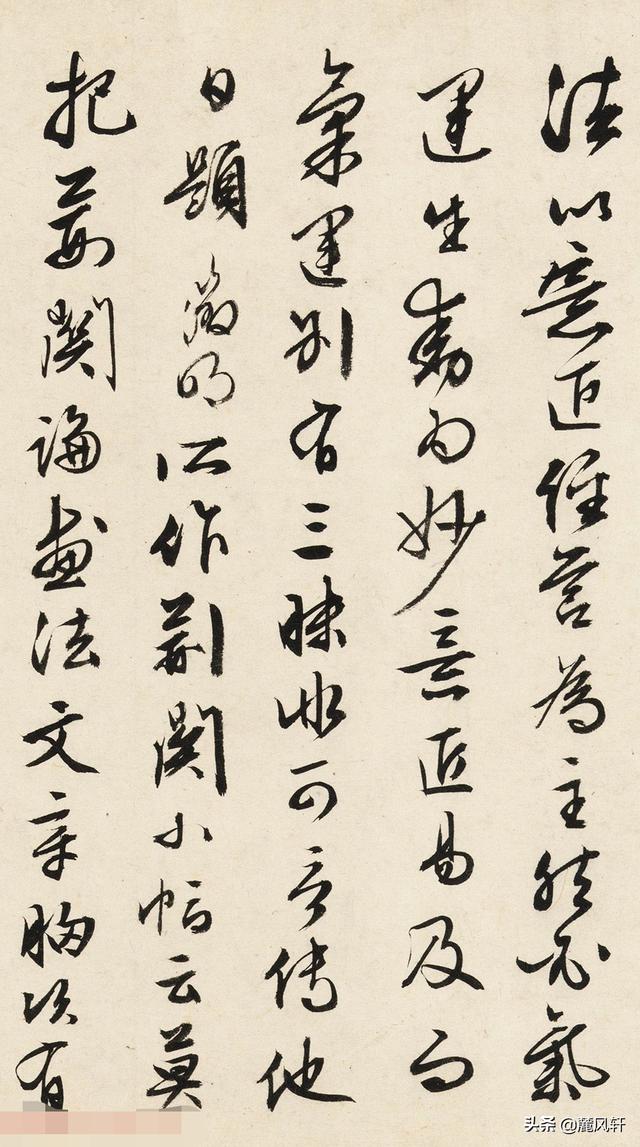 法以意匠經營為主然必氣
運生動為妙意匠易及而
氣運別有三昧非可言傳他
日題徵明所作荊關小幅云莫
把荊關論畫法文章胸次有
头条 @麓风轩